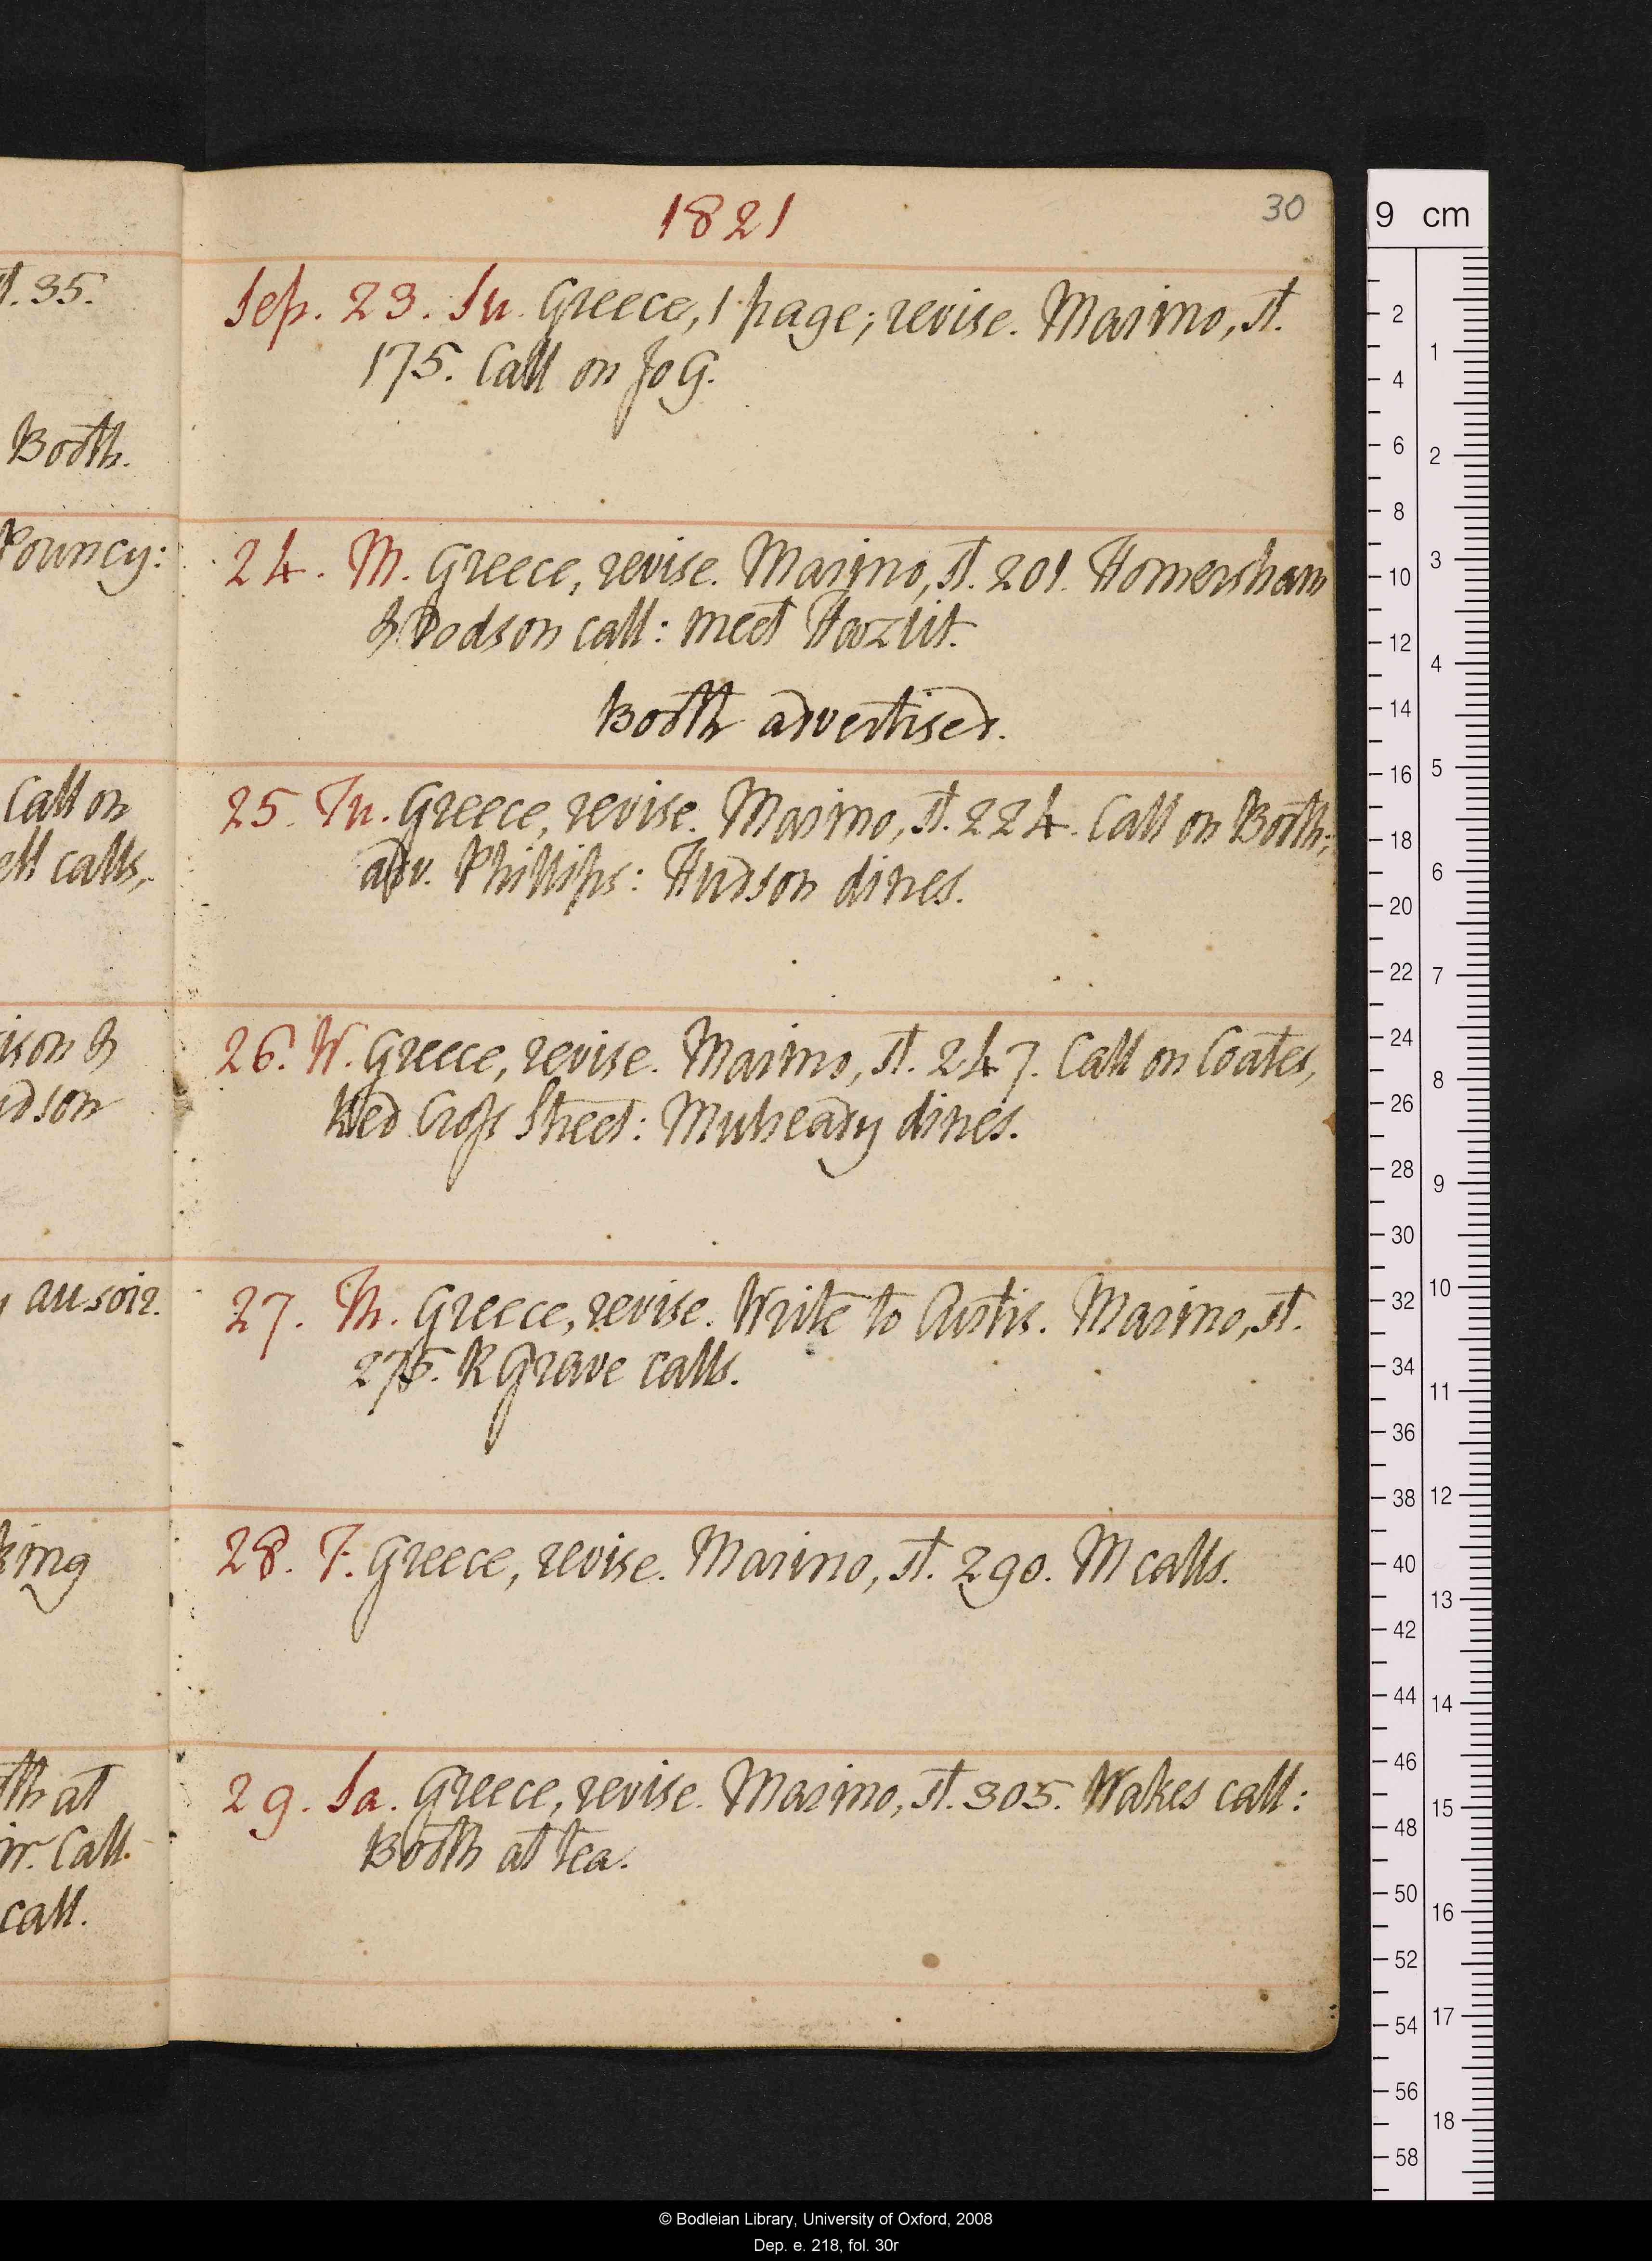 1821
30
Sep. 23. Su. Greece, 1 page; revise. Marino, st.
175. Call on Jo G.
24. M. Greece, revise. Marino, st. 201. Homersham
& Dodson call: meet Hazlit.
Booth advertised.
25. Tu. Greece, revise. Marino, st. 224. Call on Booth;
adv. Phillips: Hudson dines.
26. W. Greece, revise. Marino, st. 247. Call on Coates,
Red Cross Street: Mulready dines.
27. Th. Greece, revise. Write to Curtis. Marino, st.
275. R Grave calls.
28. F. Greece, revise. Marino, st. 290. M calls.
29. Sa. Greece, revise. Marino, st. 305. Wakes call:
Booth at tea.
st. 35.
Booth.
Pouncy:
Call on
ell calls,
ison &
udson
au soir.
king
oth at
call.
9 cm
2 4 6 8 10 12 14 16 18 20 22 24 26 28 30 32 34 36 38 40 42 44 46 48 50 52 54 56 58
1 2 3 4 5 6 7 8 9 10 11 12 13 14 15 16 17 18
© Bodleian Library, University of Oxford, 2008
Dep. e. 218, fol. 30r